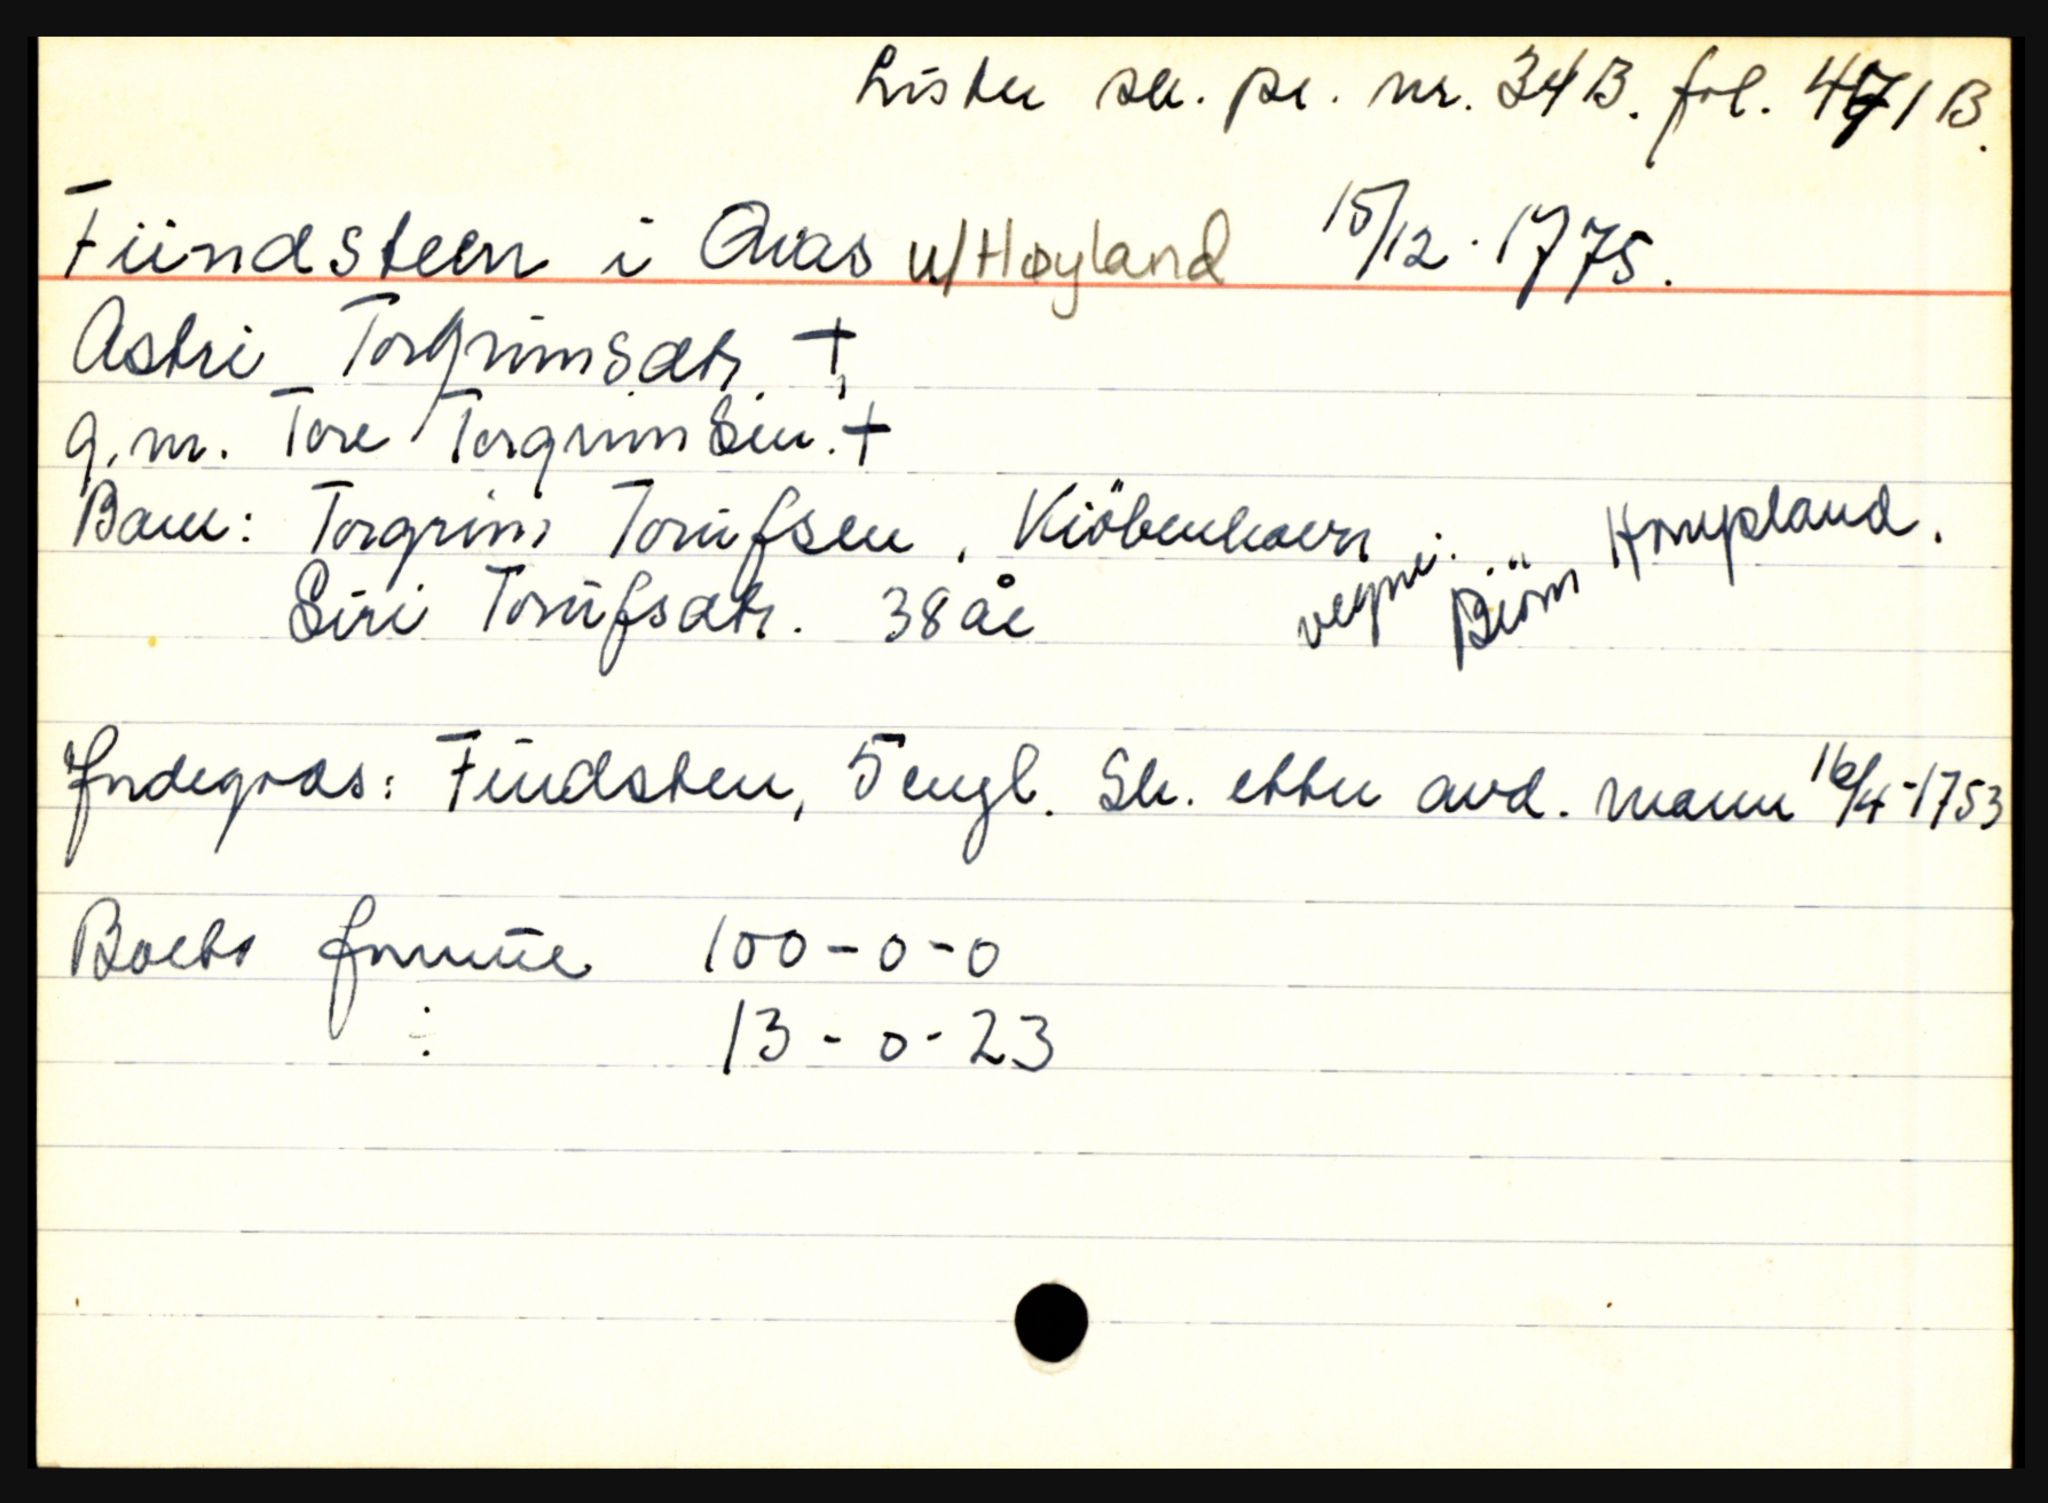 Lister sk. pr. nr. 34B. fol. 471B.
Fiindsteen i Qvas u/Høyland 15/12. 1775.
Astri Torgrimsdtr. +,
g.m. Tore Torgrimsen. +
Barn: Torgrim Torüfsen, Kiöbenhavn
Siri Torüfsdtr. 38 år
vegne: Biörn Hompland.
Jordegods: Findsten, 5 engl. Sk. etter avd. mann 16/4-1753
Boets formüe 100-0-0
: 13-0-23